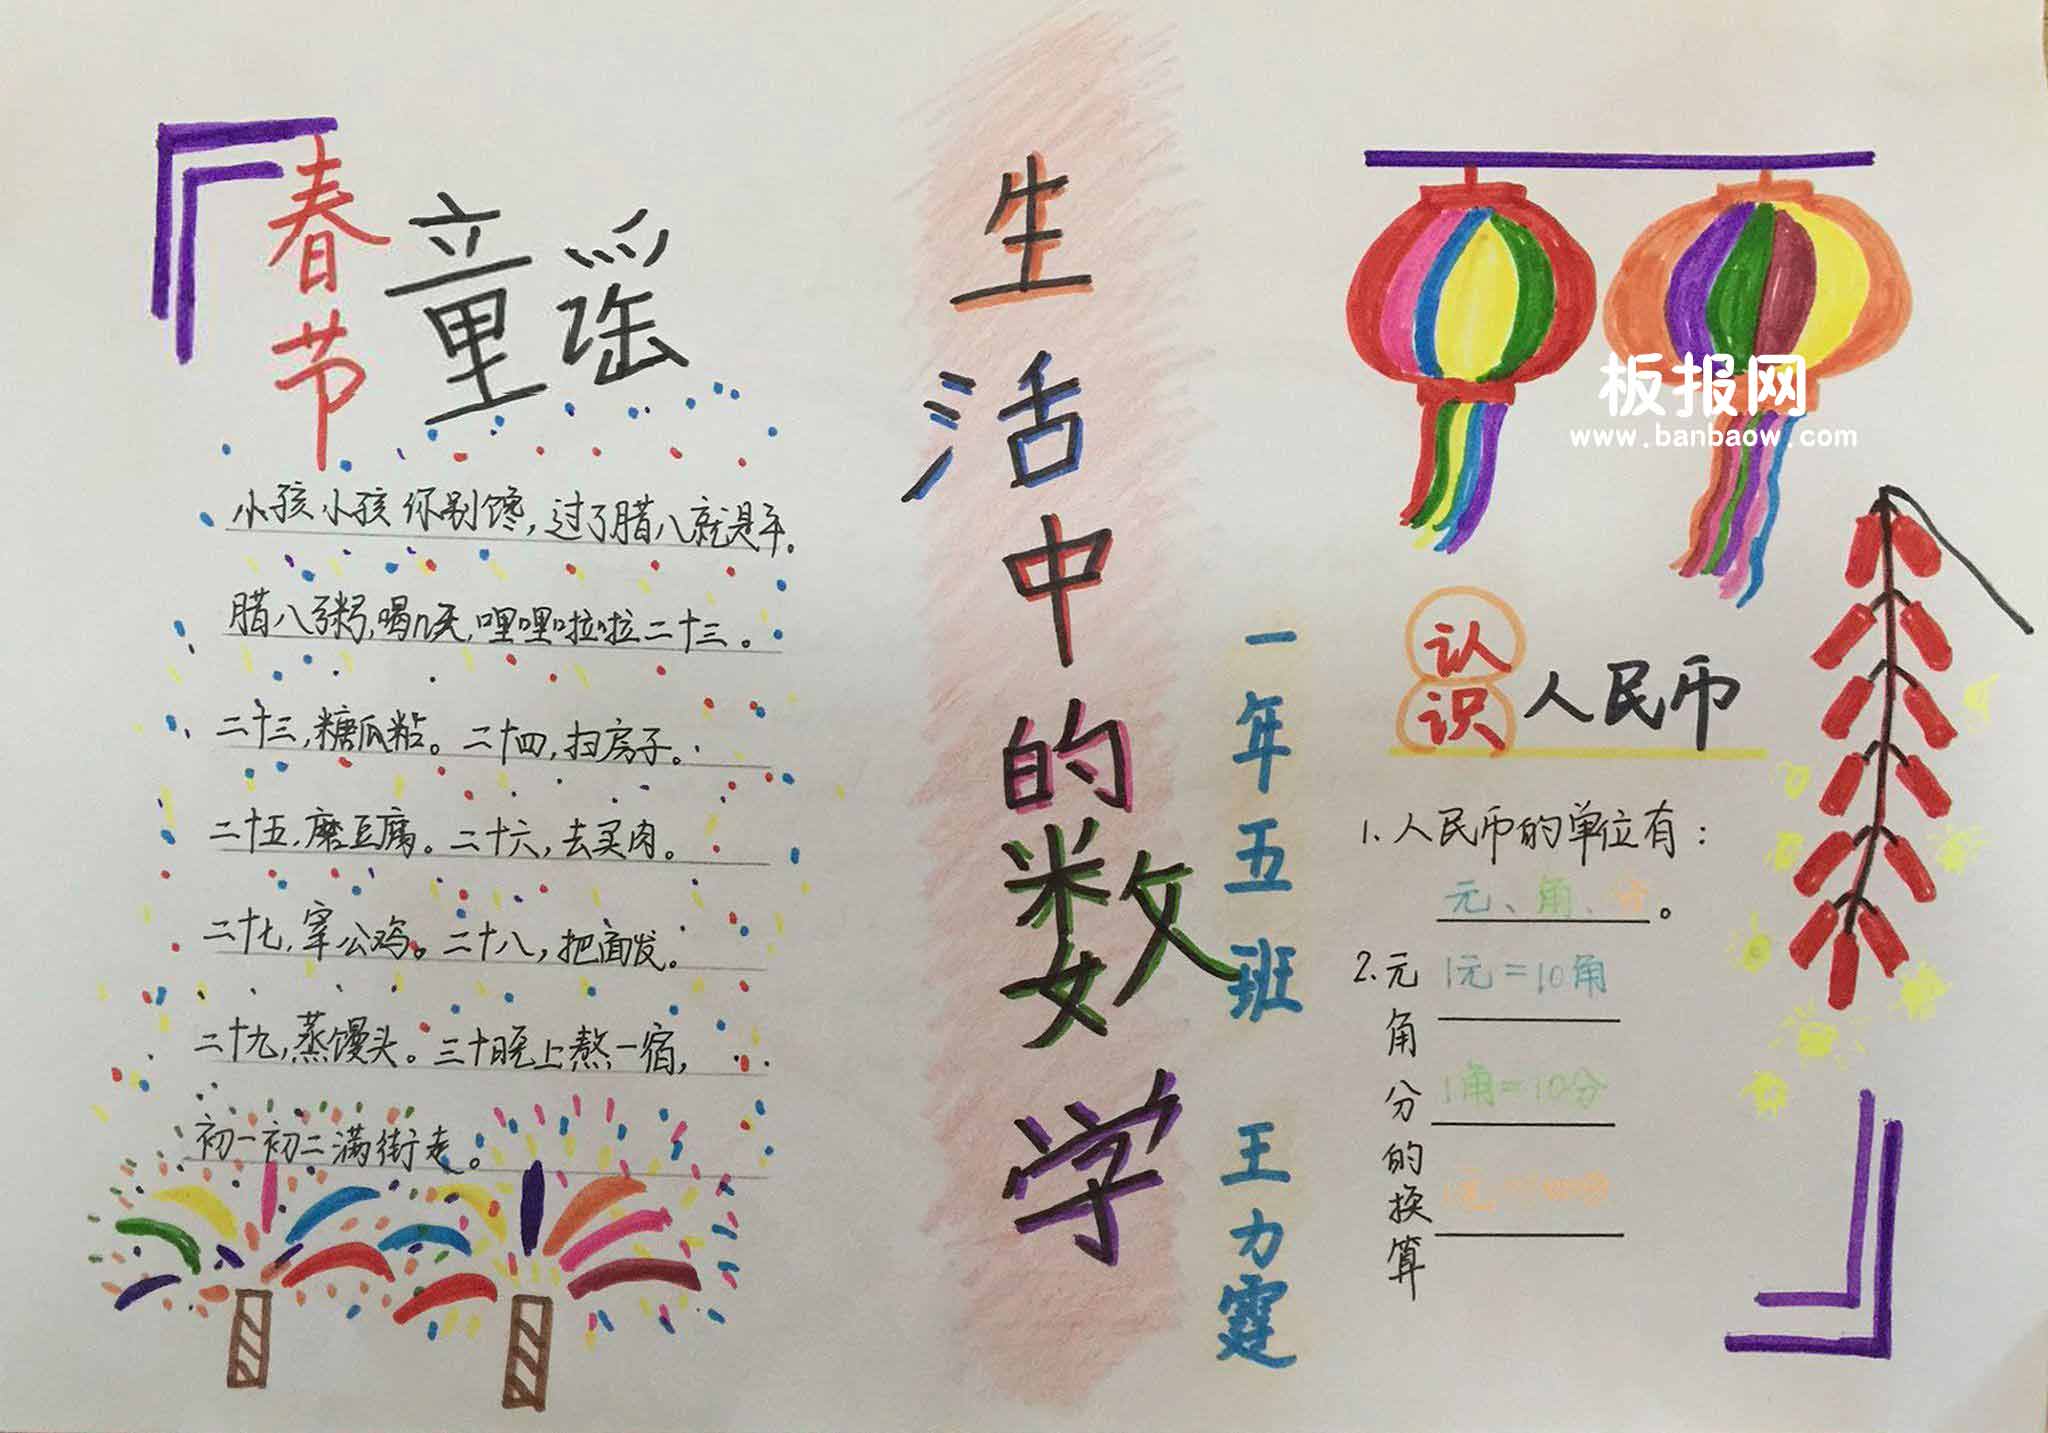 春节
童谣
小孩小孩你别馋，过了腊八就是年。
腊八粥，喝几天，哩哩啦啦二十三。
二十三，糖瓜粘。二十四，扫房子。
二十五，磨豆腐。二十六，去买肉。
二十七，宰公鸡。二十八，把面发。
二十九，蒸馒头。三十晚上熬一宿，
初一初二满街走。
生活中的数学
一年五班 王力霆
板报网
www.banbaow.com
认识人民币
1.人民币的单位有：
元、角、分。
2.元角分的换算
1元=10角
1角=10分